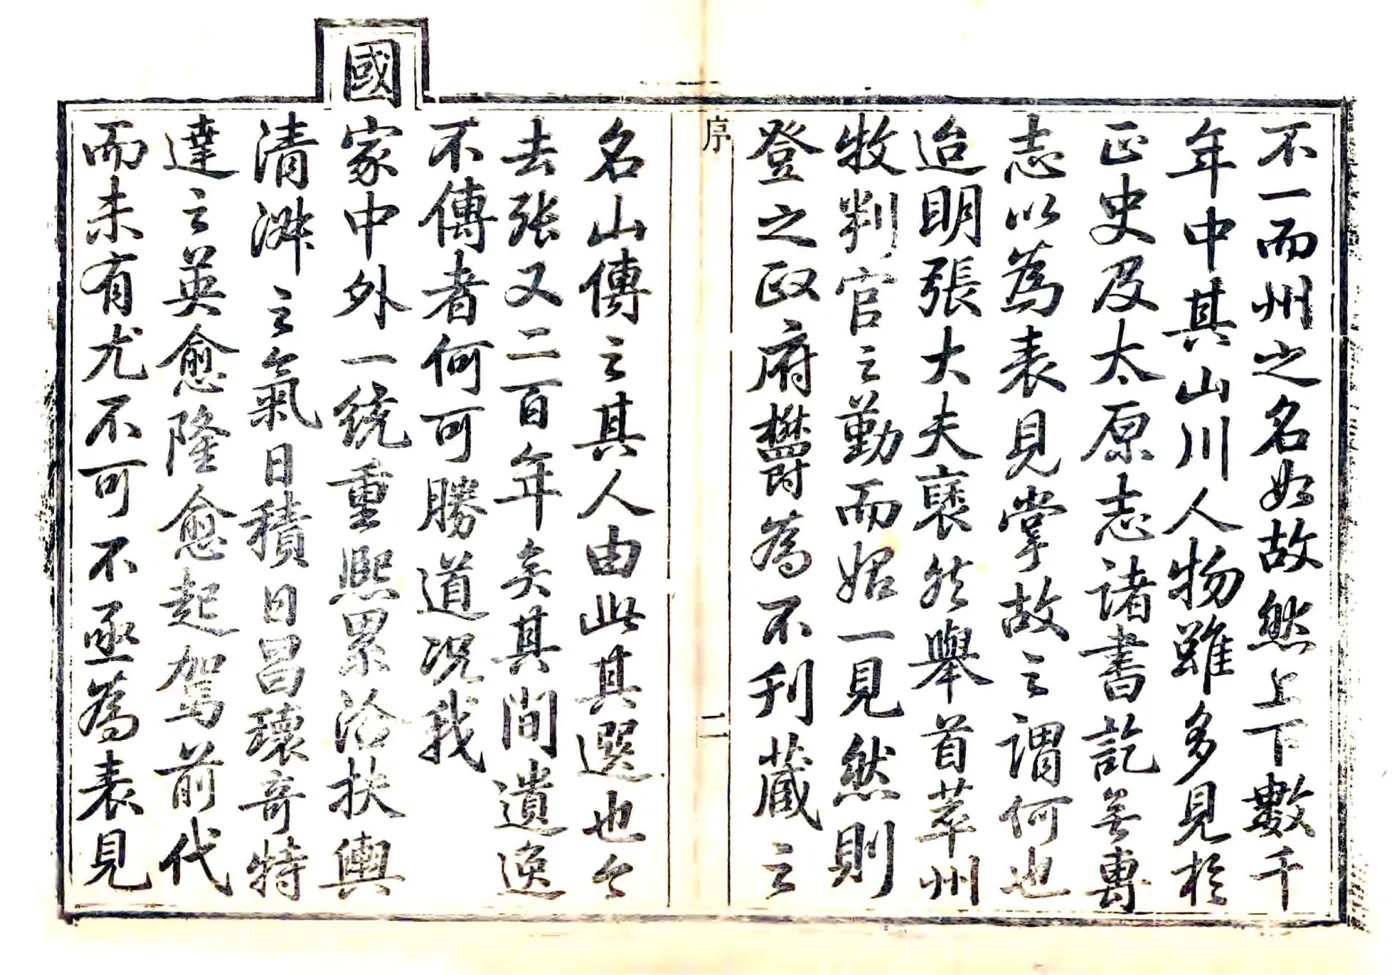 不一而州之名如故然上下數千
年中其山川人物雖多見於
正史及太原志諸書訖無專
志以為表見掌故之謂何也
迨明張大夫裒然舉首萃州
牧判官之勤而始一見然則
登之政府欝為不刊藏之
序
二
名山傳之其人由此其選也今
去張又二百年矣其間遺逸
不傳者何可勝道況我
國
家中外一統重熙累洽扶輿
清淑之氣日積日昌瓌奇特
達之英愈隆愈起駕前代
而未有尤不可不亟為表見